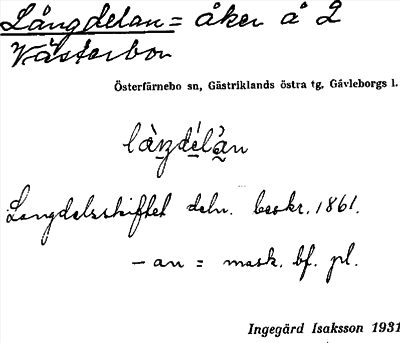 Långdelan = åker å 2
Västerbor
Österfärnebo sn, Gästriklands östra tg, Gävleborgs l.
làŋdélàn
Langdelsskiftet deln. beskr. 1861.
- an = mask. bf. pl.
Ingegärd Isaksson 1931